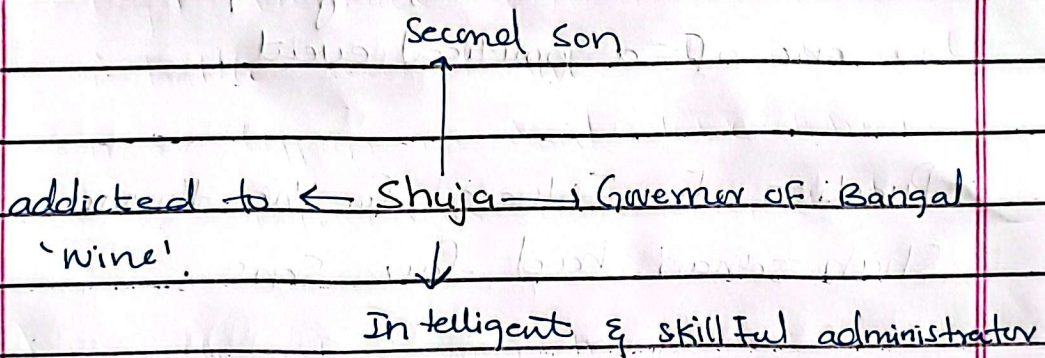 Second son
addicted to ← Shuja → Governer of Bangal
'wine'. ↓
Intelligent & skillful administrator